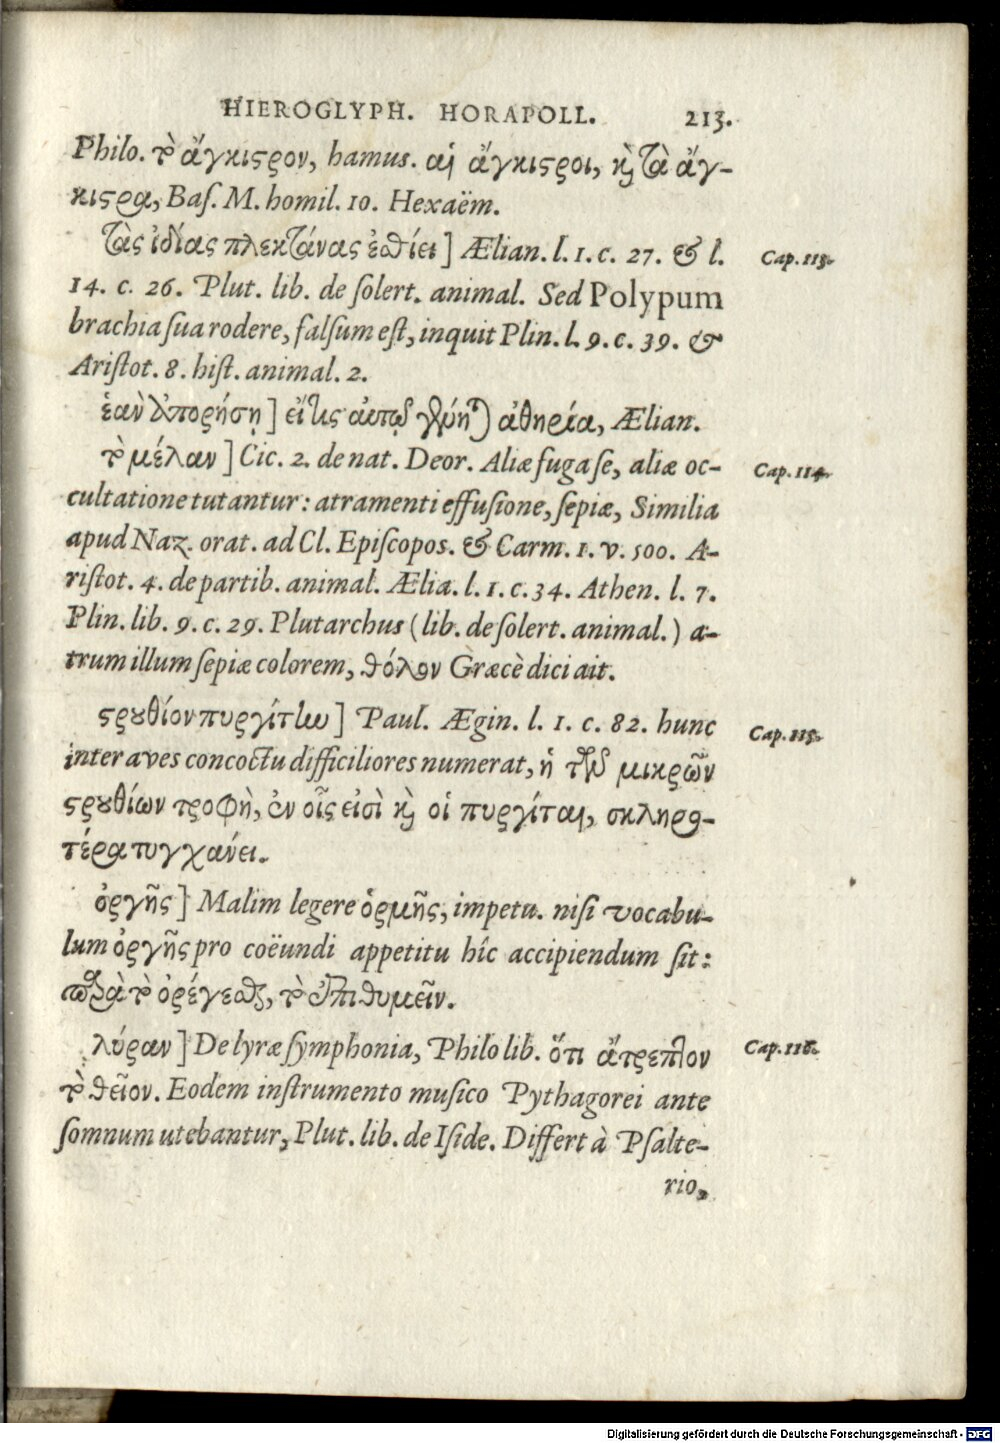 HIEROGLYPH. HORAPOLL. 213.
Philo. τὸ ἄγκιστρον, hamus. αἱ ἄγκιστροι, καὶ τὰ ἄγ-
κιστρα, Baſ. M. homil. 10. Hexaëm.
τὰς ἰδίας πλεκτάνας ἐσθίει] Ælian. l. 1. c. 27. & l. Cap. 113.
14. c. 26. Plut. lib. de ſolert. animal. Sed Polypum
brachia ſua rodere, falſum eſt, inquit Plin. l. 9. c. 39. &
Ariſtot. 8. hiſt. animal. 2.
ἐὰν ἀπορήσῃ] ἀθηρία, Ælian.
τὸ μέλαν] Cic. 2. de nat. Deor. Aliæ fuga ſe, aliæ oc- Cap. 114.
cultatione tutantur: atramenti effuſione, ſepiæ, Similia
apud Naz. orat. ad Cl. Epiſcopos. & Carm. 1. v. 500. A-
riſtot. 4. de partib. animal. Ælia. l. 1. c. 34. Athen. l. 7.
Plin. lib. 9. c. 29. Plutarchus (lib. de ſolert. animal.) a-
trum illum ſepiæ colorem, θόλον Græcè dici ait.
στρουθίον πυργίτην] Paul. Ægin. l. 1. c. 82. hunc Cap. 115.
inter aves concoctu difficiliores numerat, ἡ τῶν μικρῶν
στρουθίων τροφὴ, ἐν οἷς εἰσὶ καὶ οἱ πυργίται, σκληρο-
τέρα τυγχάνει.
ὀργῆς] Malim legere ὁρμῆς, impetu. niſi vocabu-
lum ὀργῆς pro coëundi appetitu hîc accipiendum ſit:
παρὰ τὸ ὀρέγεσθαι, τὸ ἐπιθυμεῖν.
λύραν] De lyræ ſymphonia, Philo lib. ὅτι ἄτρεπτον Cap. 116.
τὸ θεῖον. Eodem inſtrumento muſico Pythagorei ante
ſomnum utebantur, Plut. lib. de Iſide. Differt à Pſalte-
rio,
Digitalisierung gefördert durch die Deutsche Forschungsgemeinschaft - DFG